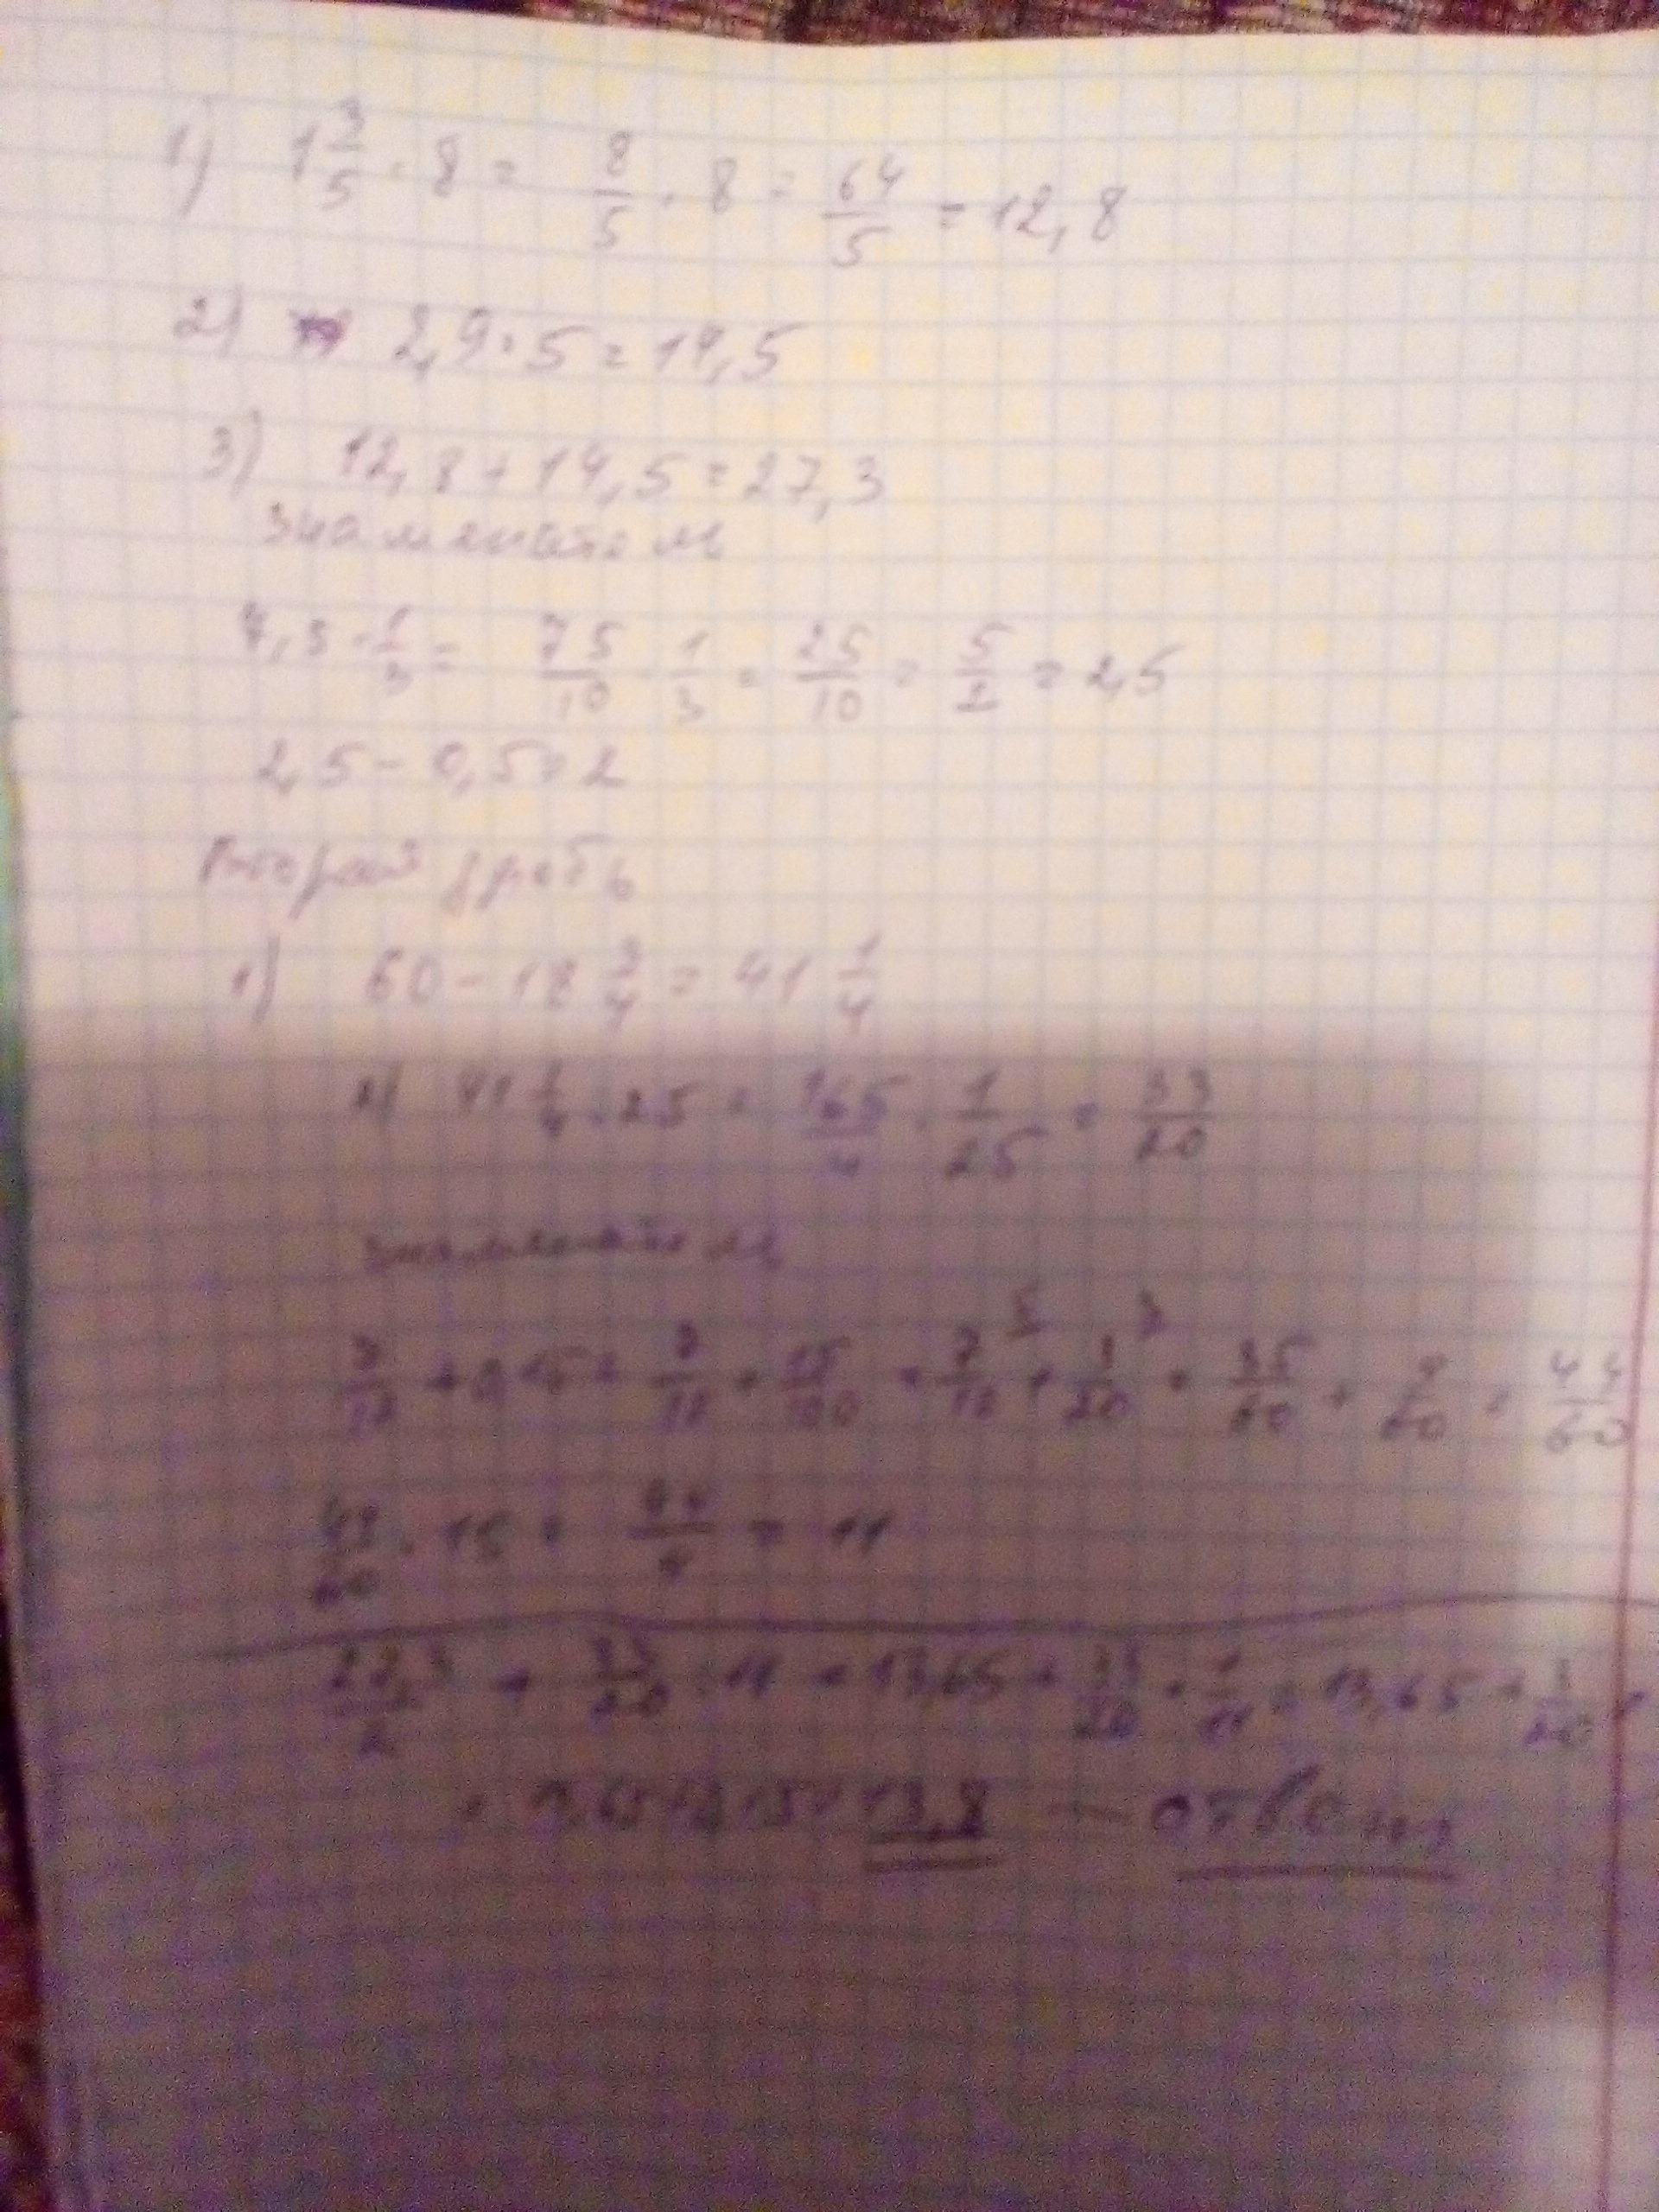 1) 1 3/5 · 8 = 8/5 · 8 = 64/5 = 12,8
2) 2,9 · 5 = 14,5
3) 12,8 + 14,5 = 27,3
Знаменатель
7,5 · 1/3 = 75/10 · 1/3 = 25/10 = 5/2 = 2,5
2,5 - 0,5 = 2
Второй дробь
1) 60 - 18 3/4 = 41 1/4
2) 41 1/4 : 25 = 165/4 · 1/25 = 33/20
Знаменатель
7/12 + 0,15 = 7/12 + 15/100 = 7/12 5 + 3/20 3 = 35/60 + 9/60 = 44/60
44/60 · 15 = 44/4 = 11
27,3/2 + 33/20 : 11 = 13,65 + 33/20 · 1/11 = 13,65 + 3/20 =
= 13,65 + 0,15 = 13,8 — ответ